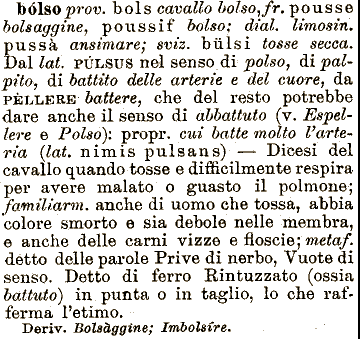 bólso prov. bols cavallo bolso, fr. pousse
bolsaggine, poussif bolso; dial. limosin.
pussà ansimare; sviz. bülsi tosse secca.
Dal lat. PÚLSUS nel senso di polso, di pal-
pito, di battito delle arterie e del cuore, da
PÈLLERE battere, che del resto potrebbe
dare anche il senso di abbattuto (v. Espel-
lere e Polso): propr. cui batte molto l'arte-
ria (lat. nimis pulsans) — Dicesi del
cavallo quando tosse e difficilmente respira
per avere malato o guasto il polmone;
familiarm. anche di uomo che tossa, abbia
colore smorto e sia debole nelle membra,
e anche delle carni vizze e floscie; metaf.
detto delle parole Prive di nerbo, Vuote di
senso. Detto di ferro Rintuzzato (ossia
battuto) in punta o in taglio, lo che raf-
ferma l'etimo.
Deriv. Bolsàggine; Imbolsíre.